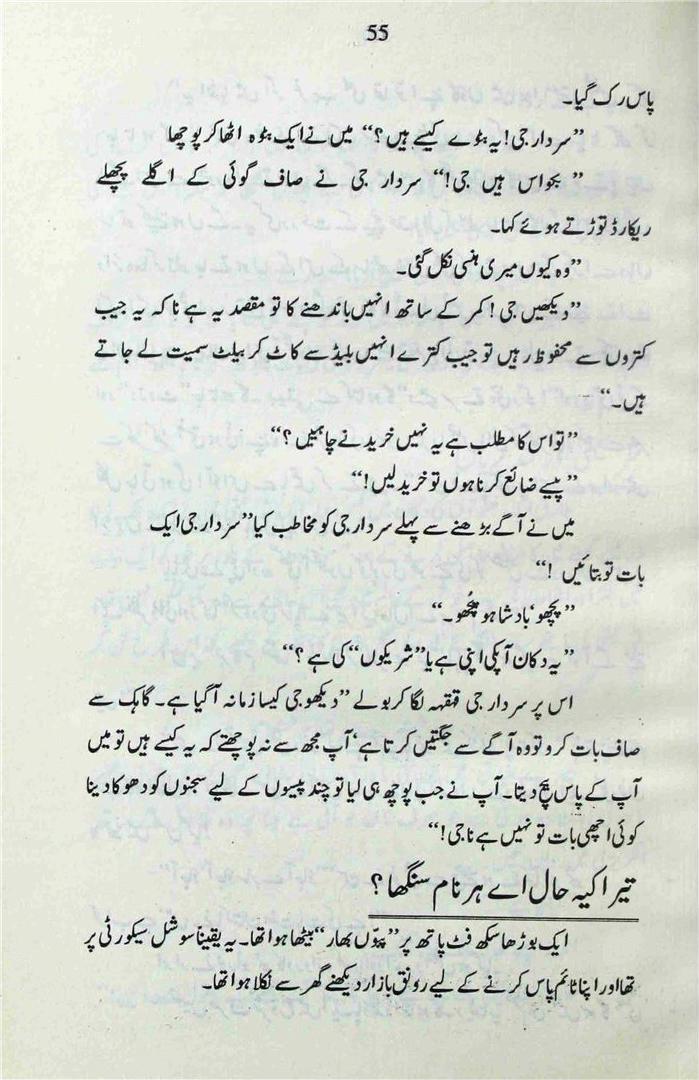 55
پاس رک گیا۔
”سردار جی! یہ بٹوے کیسے ہیں؟“ میں نے ایک بٹوہ اٹھا کر پوچھا
”بجواس ہیں جی!“ سردار جی نے صاف گوئی کے اگلے پچھلے
ریکارڈ توڑتے ہوئے کہا۔
”وہ کیوں میری ہنسی نکل گئی۔
”دیکھیں جی! کمر کے ساتھ انہیں باندھنے کا تو مقصد یہ ہے نا کہ یہ جیب
کتروں سے محفوظ رہیں تو جیب کترے انہیں بلیڈ سے کاٹ کر بیلٹ سمیت لے جاتے
ہیں۔“
”تو اس کا مطلب ہے یہ نہیں خریدنے چاہئیں؟“
”پیسے ضائع کرنا ہوں تو خرید لیں!“
میں نے آگے بڑھنے سے پہلے سردار جی کو مخاطب کیا ”سردار جی ایک
بات تو بتائیں !“
”پچھو‘ بادشاہو پچُھو۔“
”یہ دکان آپکی اپنی ہے یا ”شریکوں“ کی ہے؟“
اس پر سردار جی قہقہہ لگا کر بولے ”دیکھو جی کیسا زمانہ آگیا ہے۔ گاہک سے
صاف بات کرو تو وہ آگے سے جگتیں کرتا ہے‘ آپ مجھ سے نہ پوچھتے کہ یہ کیسے ہیں تو میں
آپ کے پاس بیچ دیتا۔ آپ نے جب پوچھ ہی لیا تو چند پیسوں کے لیے سجنوں کو دھوکا دینا
کوئی اچھی بات تو نہیں ہے نا جی!“
تیرا کیہ حال اے ہر نام سنگھا؟
ایک بوڑھا سکھ فٹ پاتھ پر ”پیّوں بھار“ بیٹھا ہوا تھا۔ یہ یقیناً سوشل سیکورٹی پر
تھا اور اپنا ٹائم پاس کرنے کے لیے رونق بازار دیکھنے گھر سے نکلا ہوا تھا۔